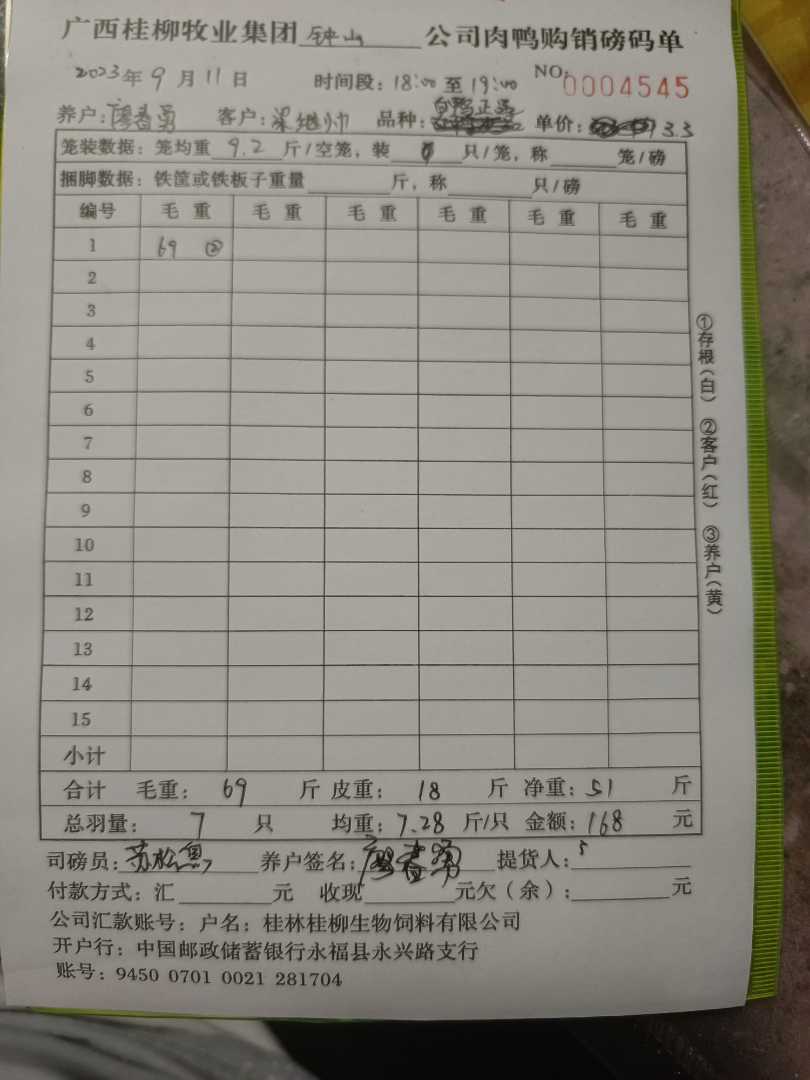 广西桂柳牧业集团钟山公司肉鸭购销磅码单
2023年9月11日 时间段：18:00至19:00 NO：0004545
养户：廖春勇 客户：梁继帅 品种：白鸭正品 单价：3.3
笼装数据：笼均重9.2斤/空笼，装 只/笼，称 笼/磅
捆脚数据：铁筐或铁板子重量 斤，称 只/磅
编号 毛重 毛重 毛重 毛重 毛重 毛重
1 69 ②
2
3
4
5
6
7
8
9
10
11
12
13
14
15
小计
合计 毛重：69斤 皮重：18斤 净重：51斤
总羽量：7只 均重：7.28斤/只 金额：168元
司磅员： 养户签名：廖春勇 提货人：
付款方式：汇 元 收现 元欠（余）： 元
公司汇款账号：户名：桂林桂柳生物饲料有限公司
开户行：中国邮政储蓄银行永福县永兴路支行
账号：9450 0701 0021 281704
①存根（白） ②客户（红） ③养户（黄）